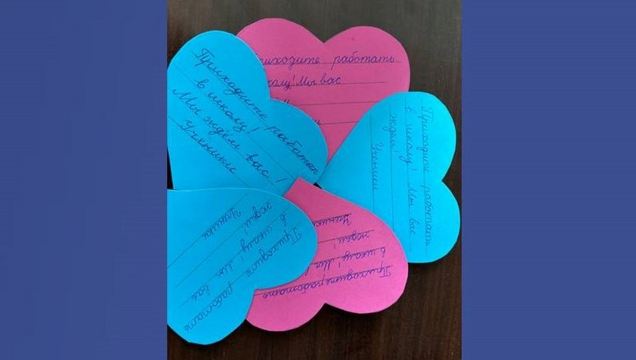 Приходите работать
в школу!
Мы ждем вас!
Ученики
риходите работать
колу! Мы вас
Приходите работать
в школу! Мы вас
ждем!
Ученики
Приходите работать
в школу! Мы вас
ждем!
Ученики
Приходите работать
в школу! Мы
ждем!
Ученик